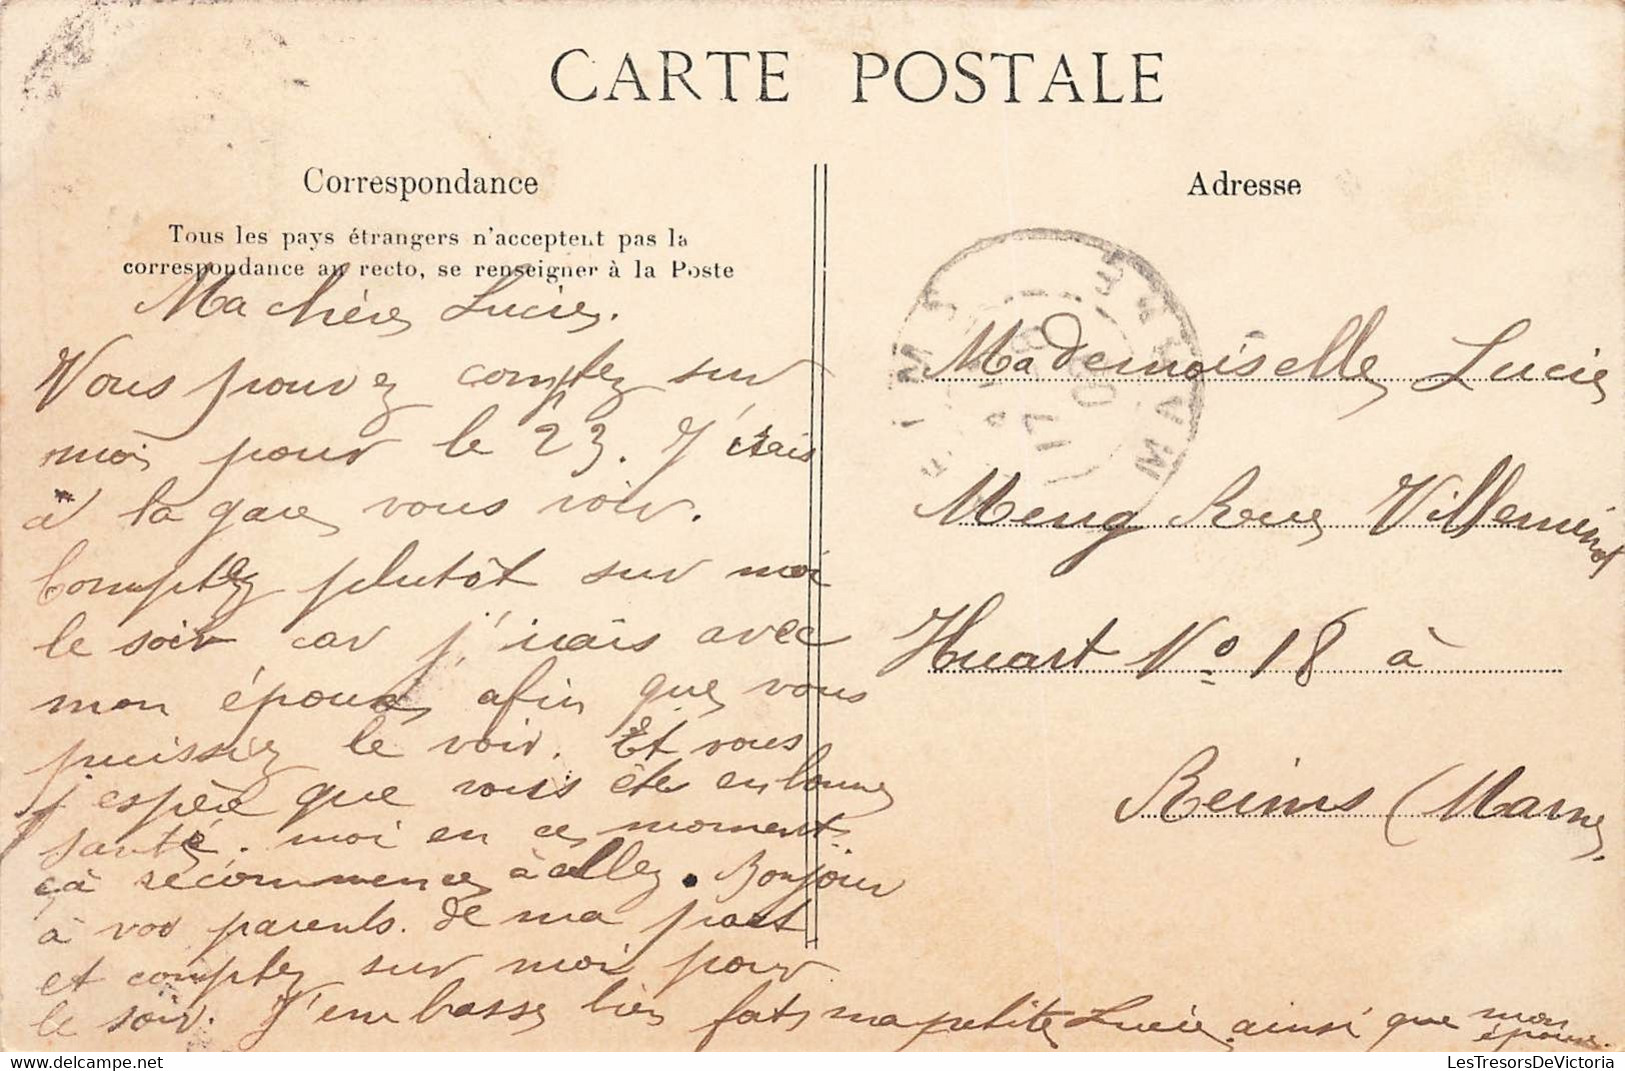 CARTE POSTALE
Correspondance
Tous les pays étrangers n'acceptent pas la
correspondance au recto, se renseigner à la Poste
Ma chère Lucie.
Vous pouvez comptez sur
moi pour le 23. J'étais
à la gare vous voir.
Comptez plutôt sur moi
le soir car j'irais avec
mon époux afin que vous
puissiez le voir. Et vous
j'espère que vous êtes en bonne
santé. moi en ce moment
çà recommence à allez. Bonjour
à vos parents de ma part
et comptez sur moi pour
le soir. J'embrasse bien fort ma petite Lucie ainsi que mon
époux.
Adresse
REIMS
MARNE
Mademoiselle Lucie
Meng Rue Villeminot
Huart No 18 à
Reims (Marne
LesTresorsDeVictoria